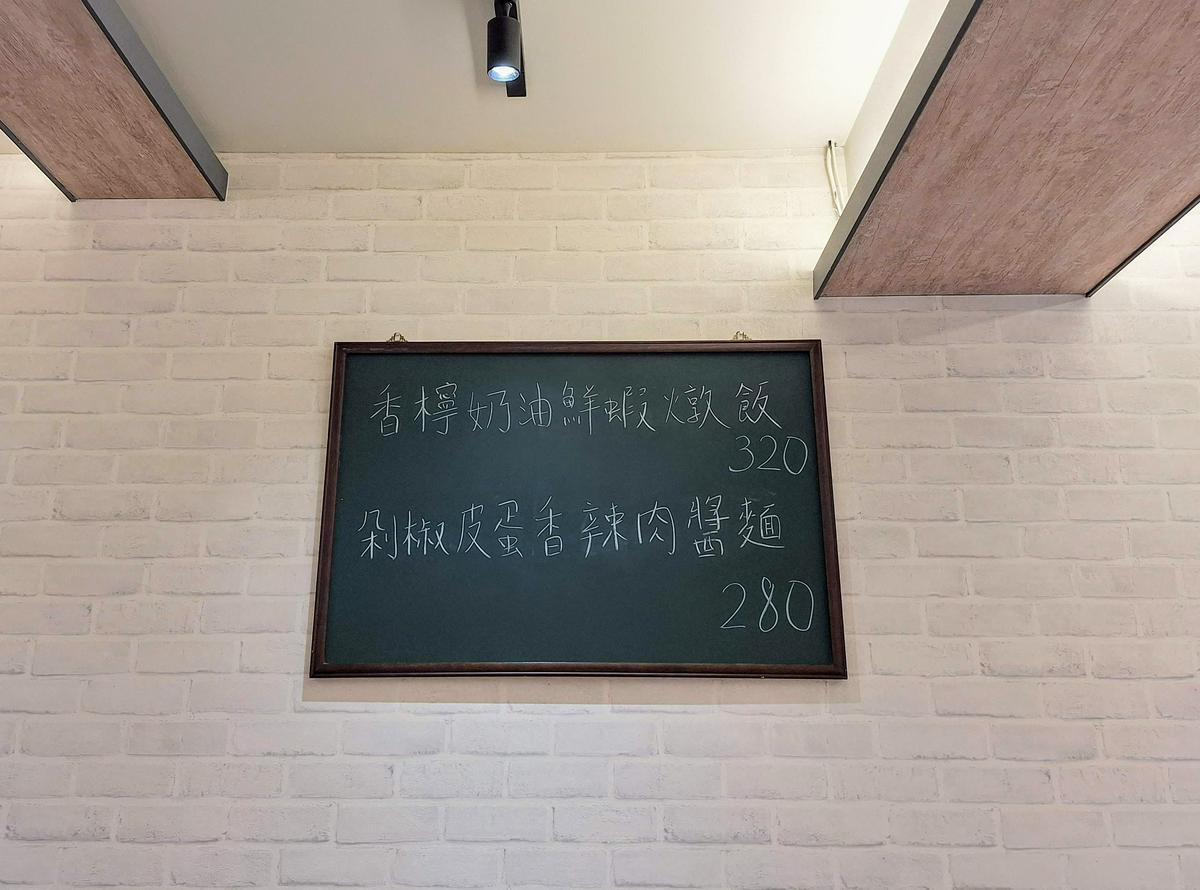 香檸奶油鮮蝦燉飯
320
剁椒皮蛋香辣肉醬麵
280